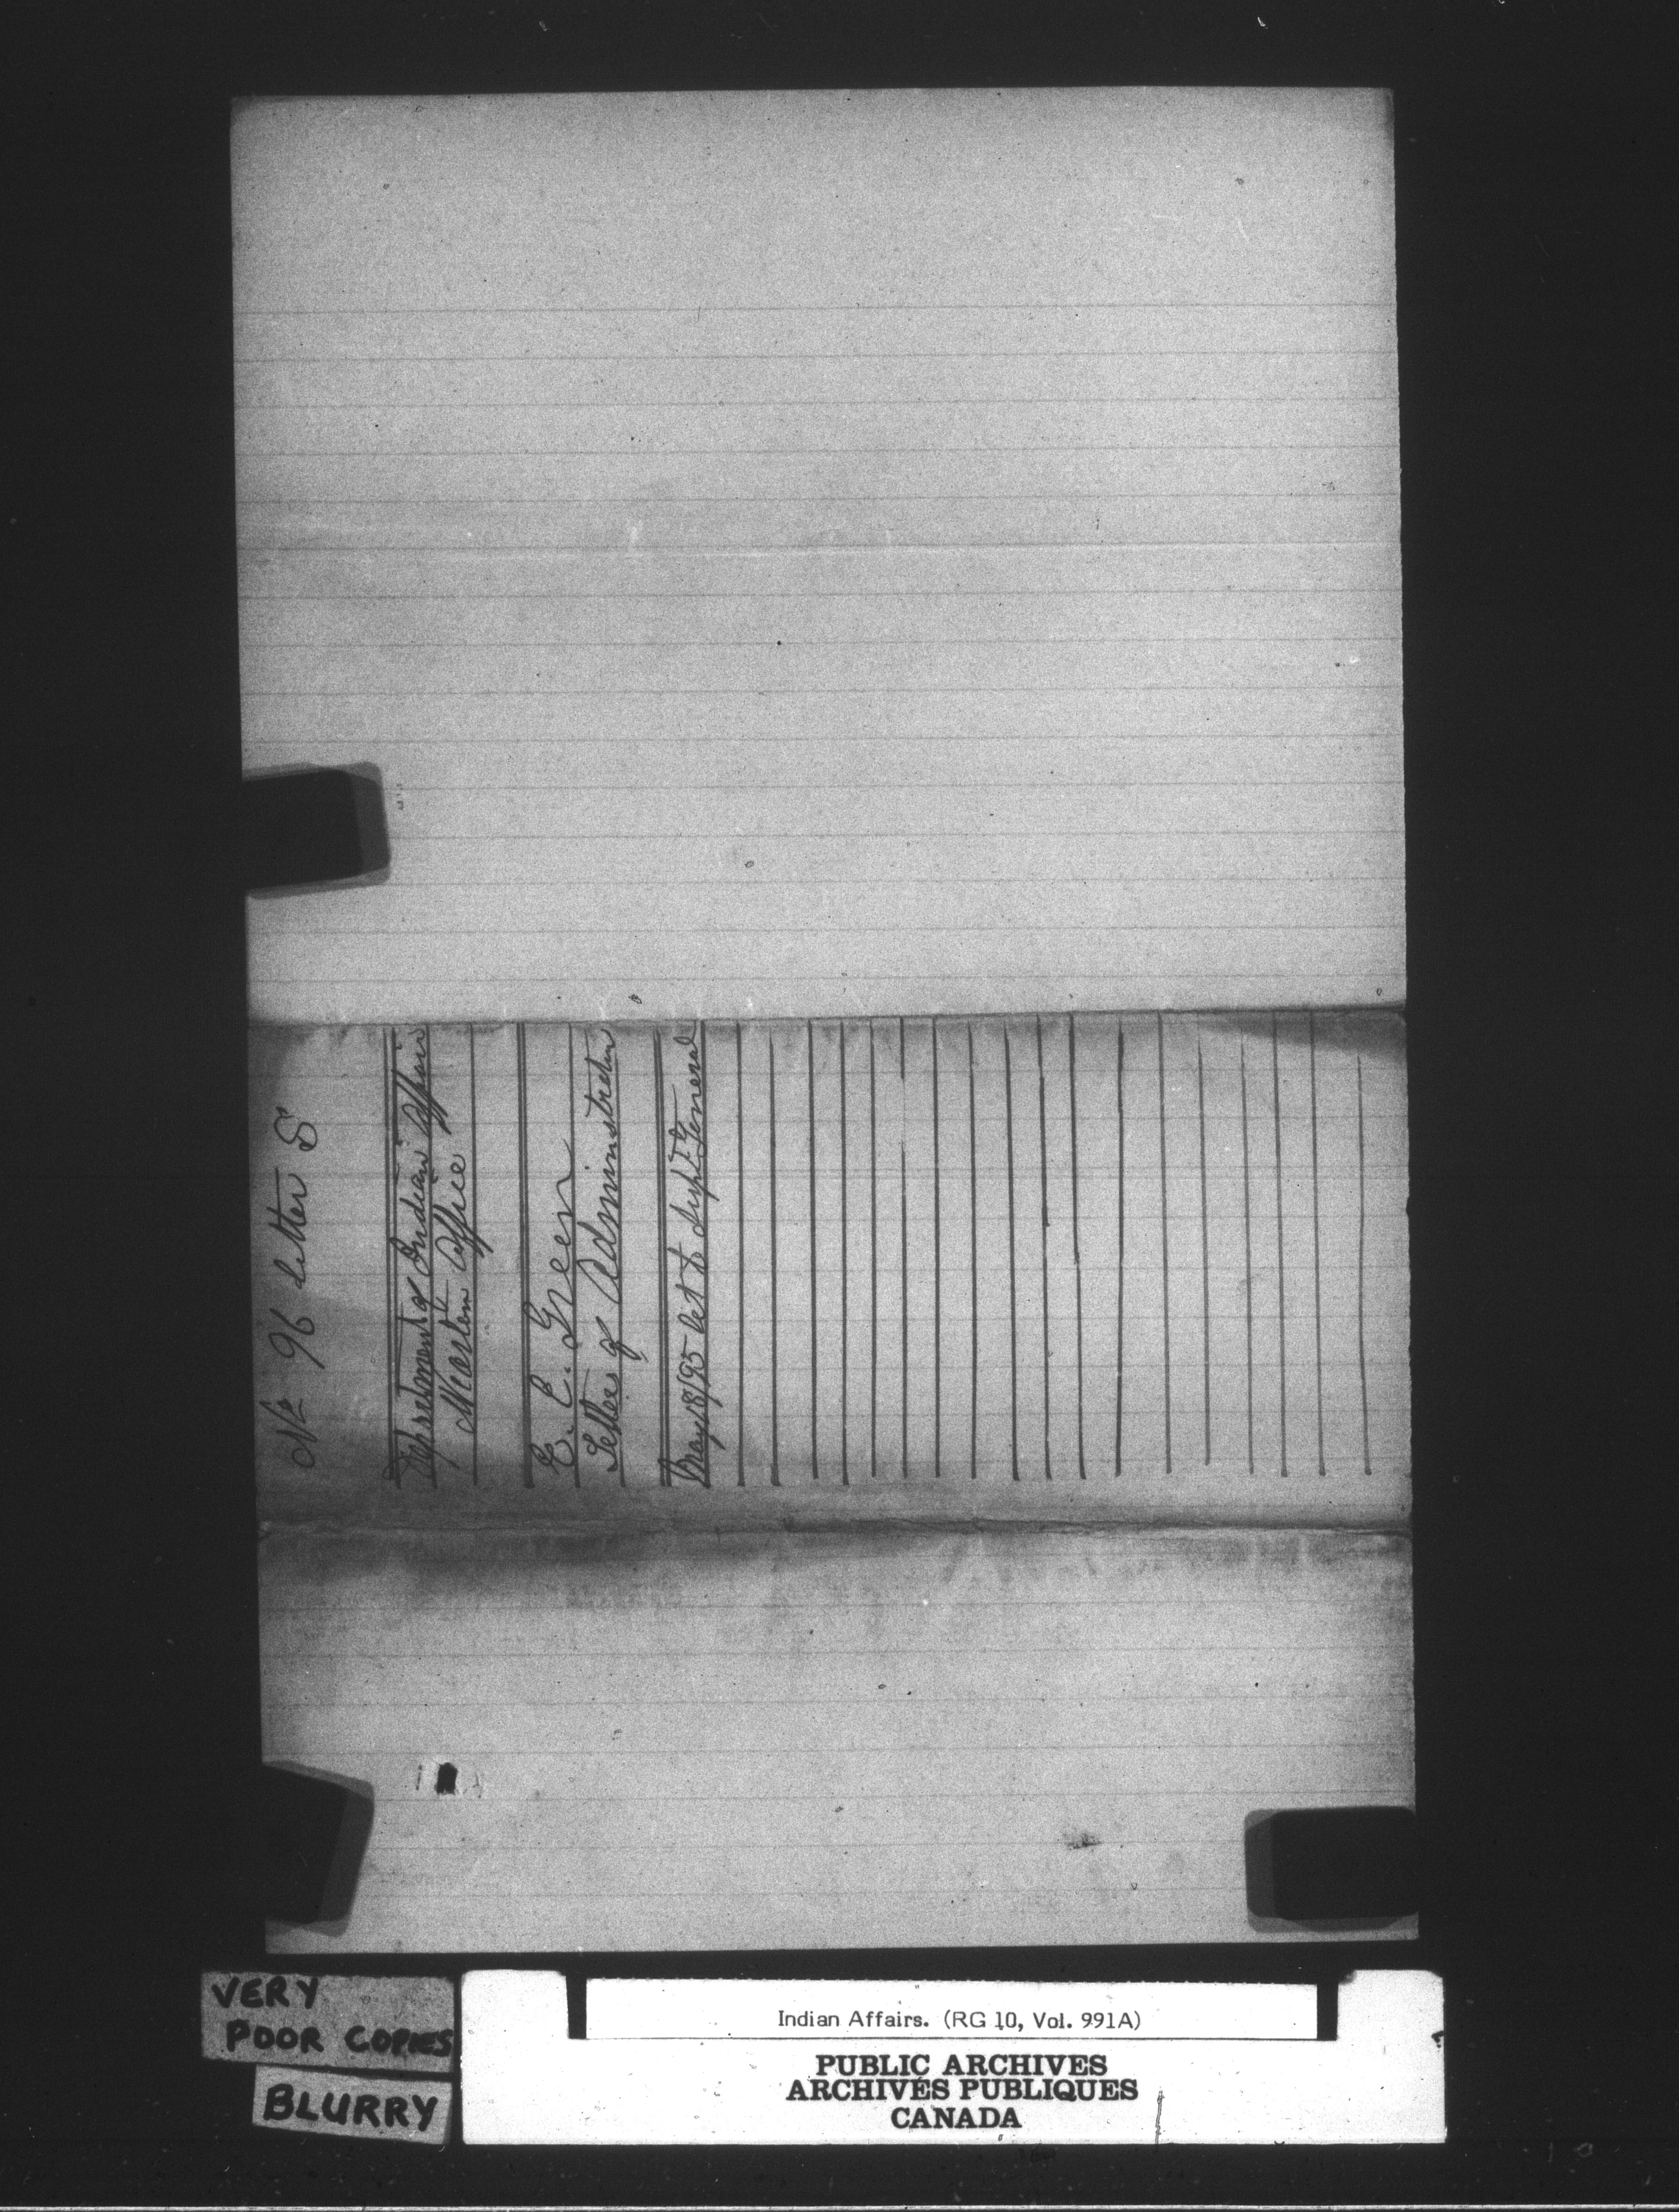 No 96 letter S
Department of Indian Affairs
Western Office
E. C. Green
Letters of Administration
May 18/95 let to Supt General
VERY
POOR COPIES
BLURRY
Indian Affairs. (RG 10, Vol. 991A)
PUBLIC ARCHIVES
ARCHIVES PUBLIQUES
CANADA